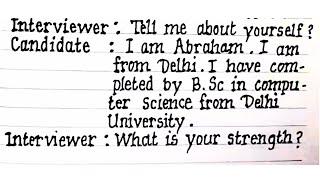 Interviewer : Tell me about yourself?
Candidate : I am Abraham. I am
from Delhi. I have com-
pleted by B.Sc in compu-
ter science from Delhi
University.
Interviewer : What is your strength?